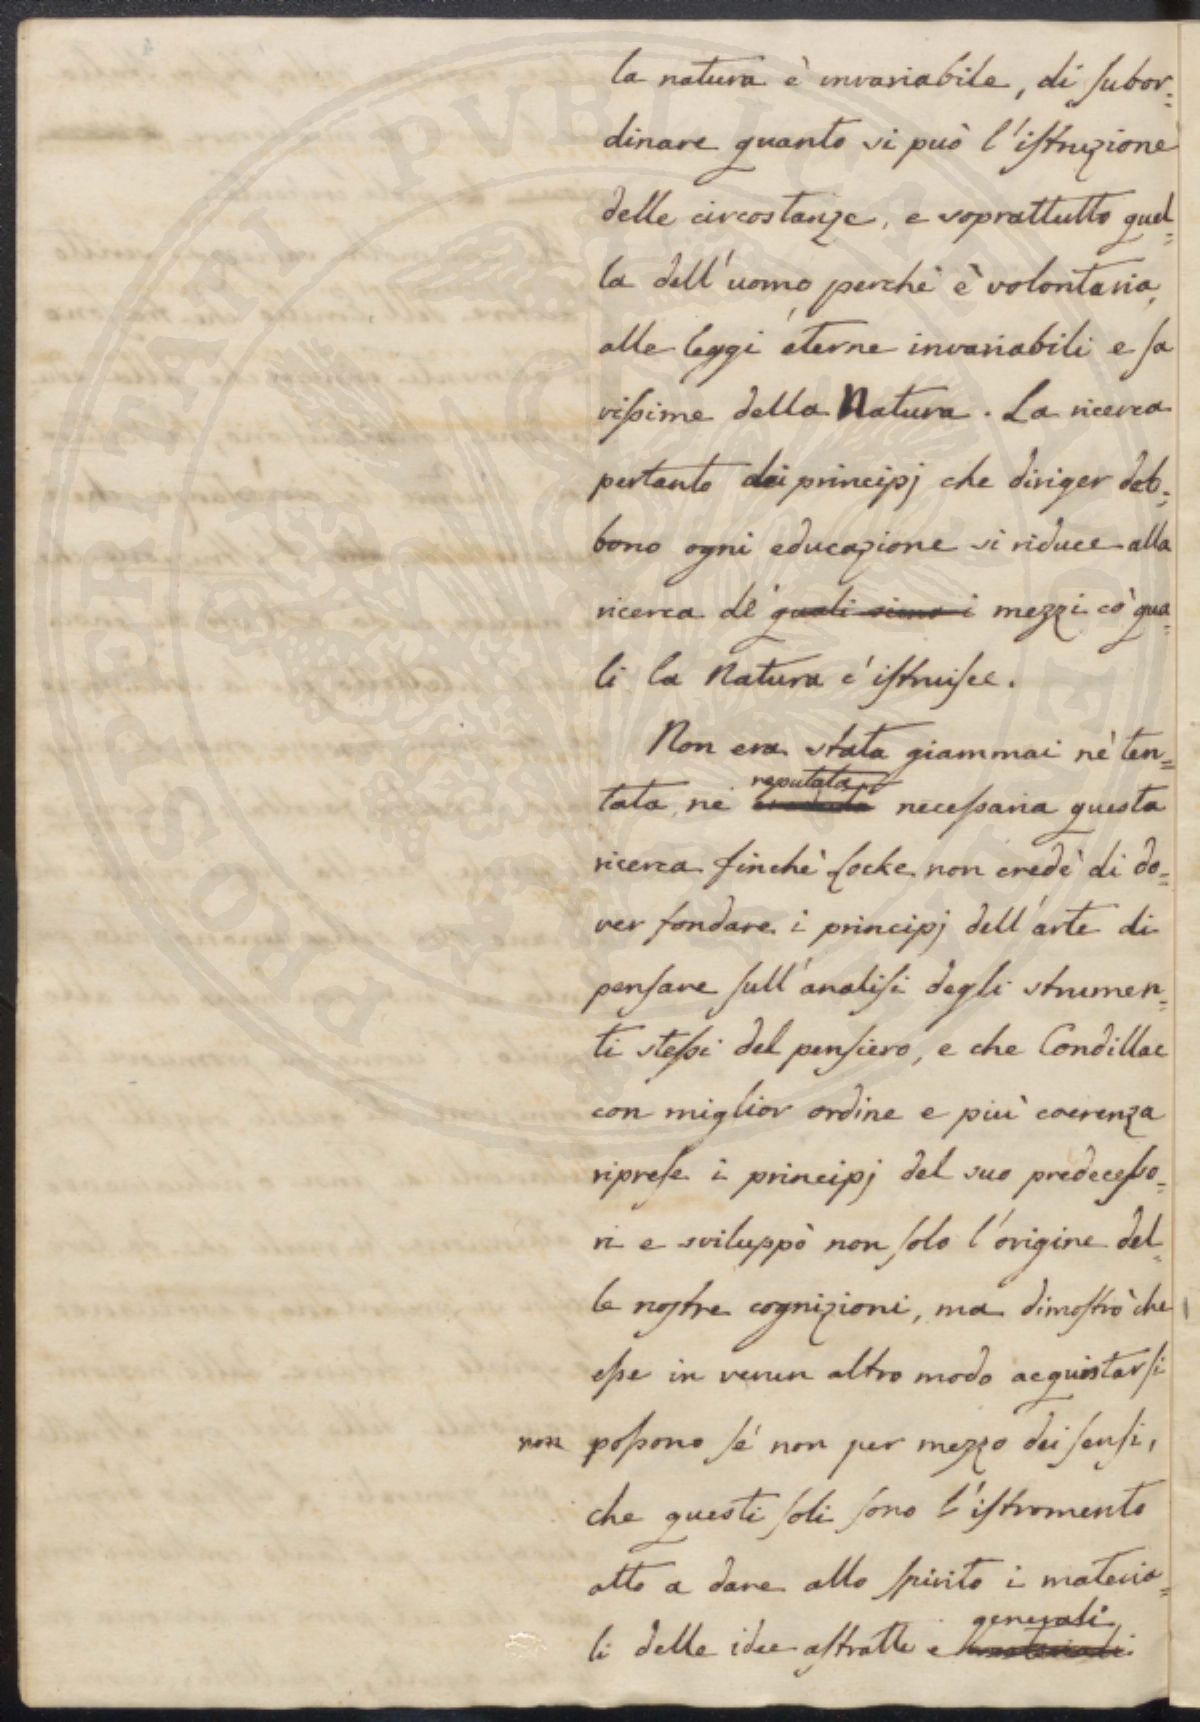 la natura è invariabile, di subor=
dinare quanto si può l'istruzione
delle circostanze, e soprattutto quel=
la dell'uomo perchè è volontaria,
alle leggi eterne invariabili e sa
vissime della Natura. La ricerca
pertanto dei principj che diriger deb=
bono ogni educazione si riduce alla
ricerca de' quali siano i mezzi co' qua=
li la Natura c'istruisce.
Non era stata giammai nè ten=
reputata
tata, nè creduta necessaria questa
ricerca finchè Locke non credè di do=
ver fondare i principj dell'arte di
pensare sull'analisi degli strumen=
ti stessi del pensiero, e che Condillac
con miglior ordine e più coerenza
riprese i principj del suo predecesso=
re e sviluppò non solo l'origine del=
le nostre cognizioni, ma dimostrò che
esse in verun altro modo acquistarsi
non possono sè non per mezzo dei sensi,
che questi soli sono l'istromento
atto a dare allo spirito i materia=
generali
li delle idee astratte e